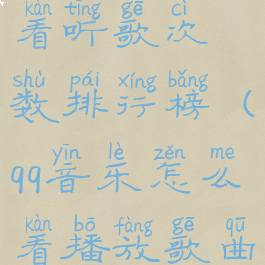 kàn tīng gē cì
看听歌次
shù pái xíng bǎng
数排行榜(
yīn lè zěn me
99音乐怎么
kàn bō fàng gē qū
看播放歌曲